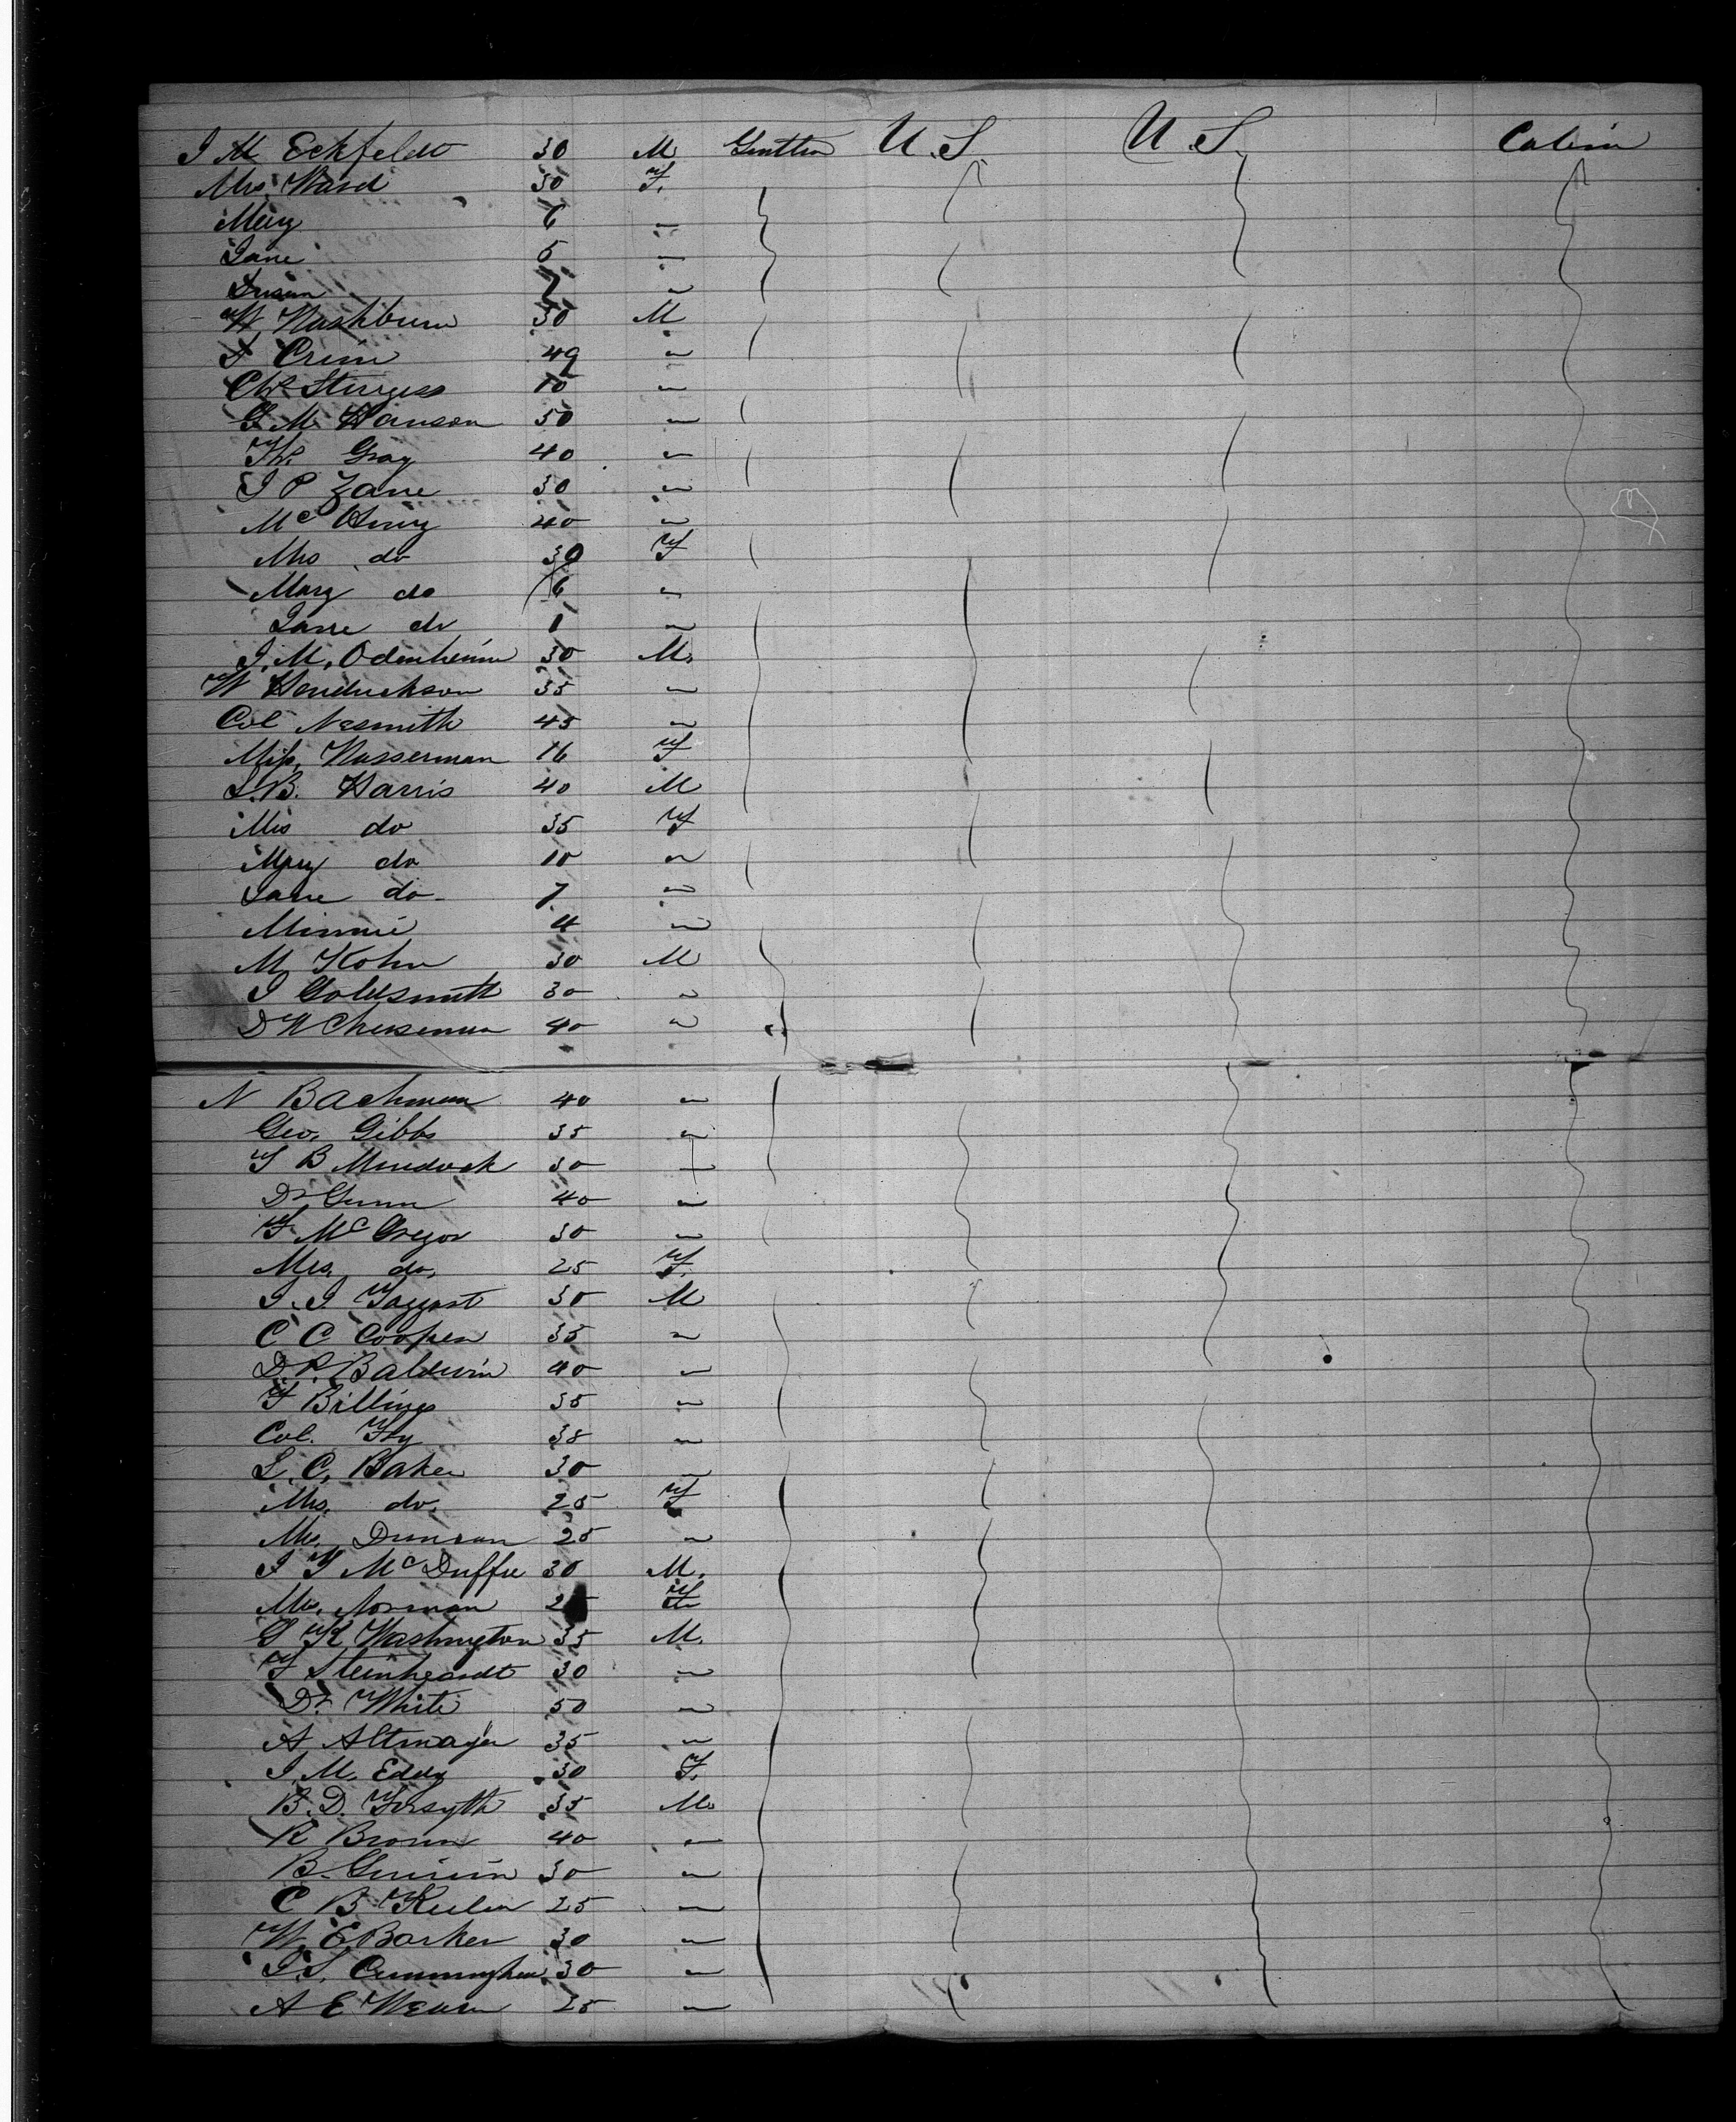 J M Eckfeldt 30 M Gentlen U.S. U.S. Cabin
Mrs Ward 30 F.
Mary 6 "
Jane 5 "
Susan 2 "
W. Washburn 30 M
S Crim 49 "
Chs Sturgess 10 "
G. M. Hanson 50 "
Th. Gray 40 "
J P Zane 30 "
Mc Henry 40 "
Mrs do 30 F
Mary do 6 "
Jane do 1 "
J. M. Odenheim 30 M.
W Hendrickson 35 "
Col Nesmith 45 "
Miss Wasserman 16 F
L. B. Harris 40 M
Mrs do 35 F
Mary do 10 "
Jane do 7 "
Minnie 4 "
M Kohn 30 M
J Goldsmith 30 "
D W Cheseman 40 "
N Bachman 40 "
Geo. Gibbs 35 "
F B Murdock 30 "
Dr Gunn 40 "
F McGregor 30 "
Mrs. do. 25 F.
J. J. Taggart 30 M
C C Cooper 35 "
D. P. Baldwin 40 "
F Billings 35 "
Col. Fry 38 "
L. C. Baker 30 "
Mrs. do. 25 F
Mrs. Duncan 25 "
J Y McDuffie 30 M.
Mrs. Norman 25 F
G K Washington 35 M.
F Steinheardt 30 "
Dr. White 50 "
A Altmayer 35 "
J. M. Eddy 30 F.
B. D. Forsyth 35 M.
R Brown 40 "
B. 30 "
C B 25 "
W. E. Barker 30 "
J. S. Cunningham 30 "
A E 25 "